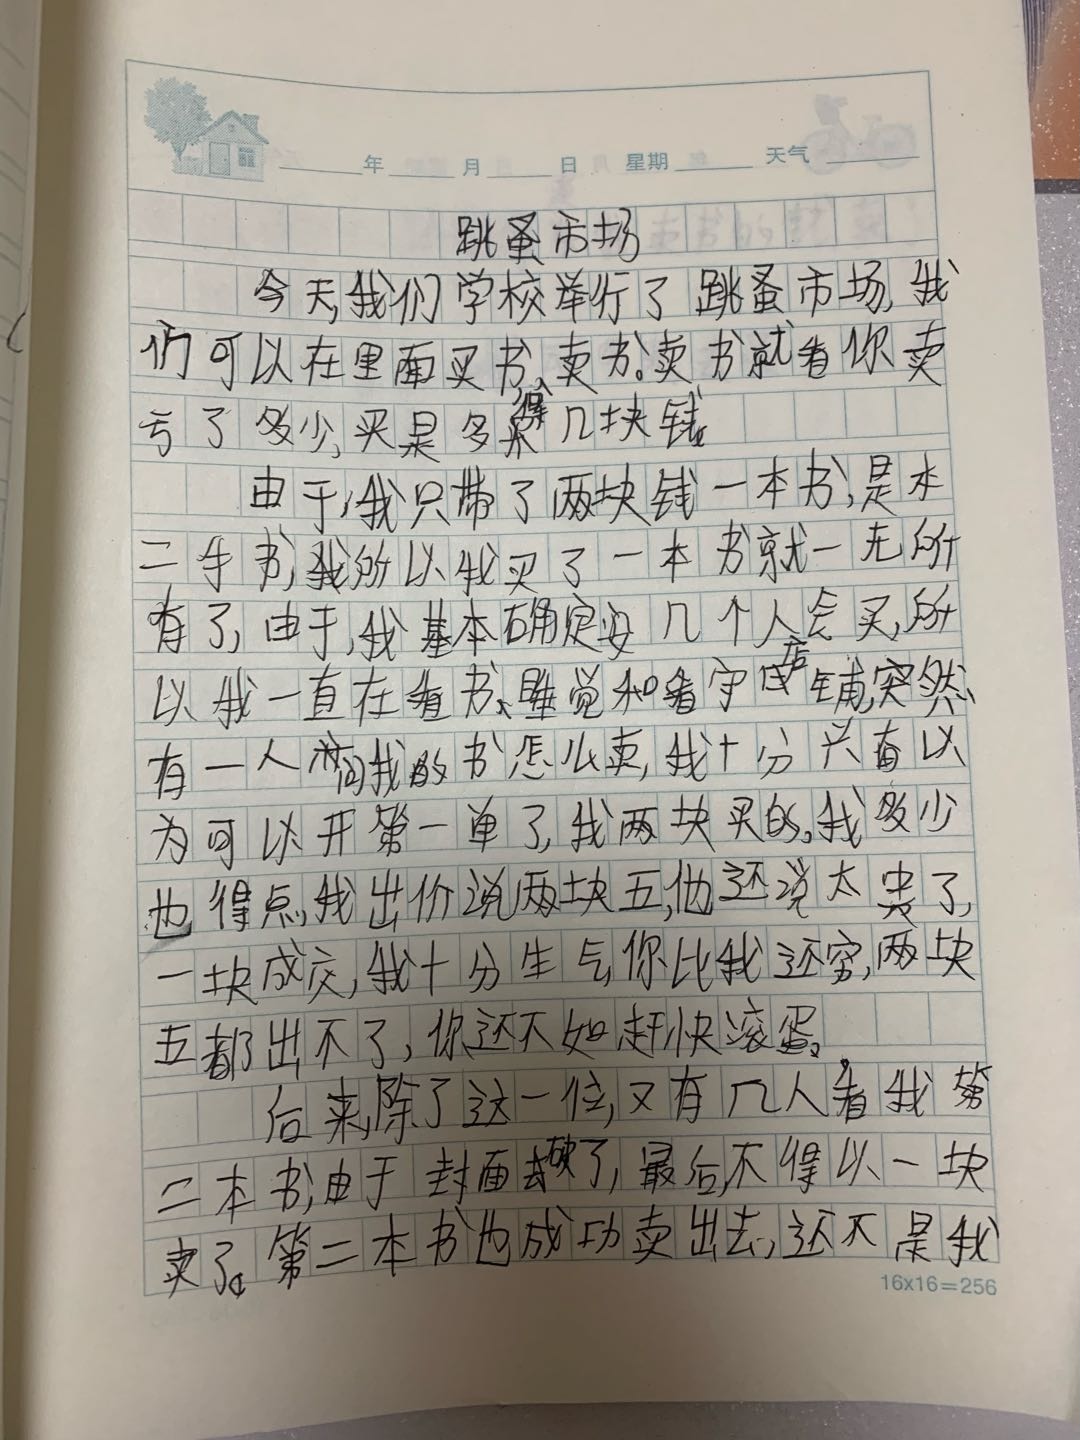 年 月 日 星期 天气
跳蚤市场
今天,我们学校举行了跳蚤市场,我
们可以在里面买书、卖书。卖书就看你卖
亏了多少,买是多得几块钱。
由于,我只带了两块钱一本书,是本
二手书,我所以我买了一本书就一无所
有了,由于,我基本确定没几个人会买,所
以我一直在看书、睡觉和看守店铺,突然、
有一人问我的书怎么卖,我十分兴奋以
为可以开第一单了,我两块买的,我多少
也得点,我出价说两块五,他还说太贵了,
一块成交,我十分生气,你比我还穷,两块
五都出不了,你还不如赶快滚蛋。
后来,除了这一位,又有几人看我第
二本书,由于封面破了,最后,不得以一块
卖了。第二本书也成功卖出去,还不是我
16x16=256